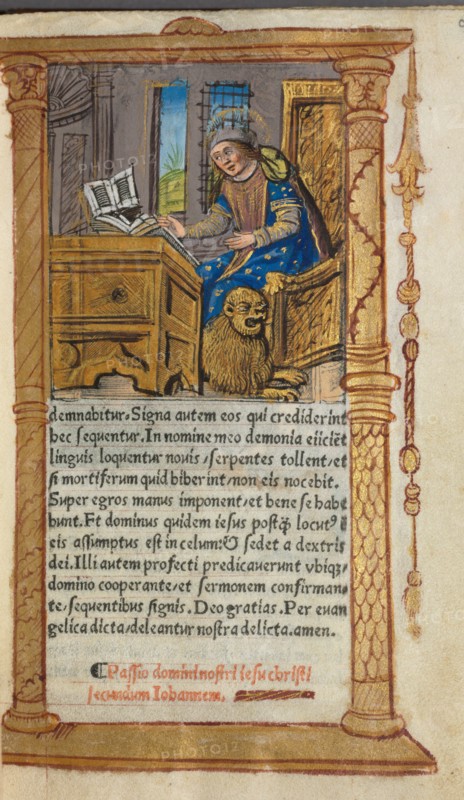 demnabitur. Signa autem eos qui crediderint
hec sequentur. In nomine meo demonia eiiciẽt
linguis loquentur nouis / serpentes tollent / et
si mortiferum quid biberint / non eis nocebit.
Super egros manus imponent / et bene se habe
bunt. Et dominus quidem iesus postq̃ locutꝰ
eis assumptus est in celum: & sedet a dextris
dei. Illi autem profecti predicauerunt vbiqꝫ /
domino cooperante / et sermonem confirman
te / sequentibus signis. Deo gratias. Per euan
gelica dicta / deleantur nostra delicta. amen.
¶ Passio domini nostri iesu christi
secundum Iohannem.
PHOTO12
PHOTO12
PHOTO12
PHOTO12